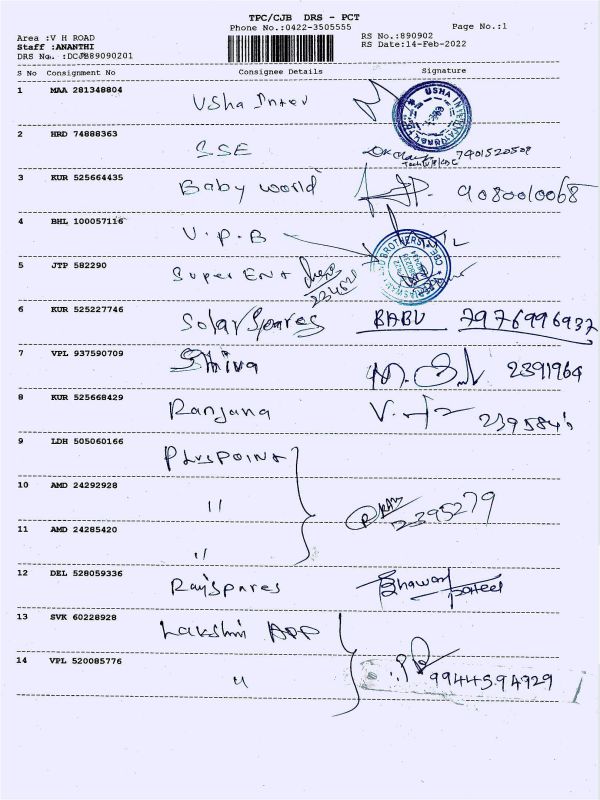 TPC/CJB DRS - PCT
Phone No.:0422-3505555
Page No.:1
Area :V H ROAD
RS No.:890902
Staff :ANANTHI
RS Date:14-Feb-2022
DRS No. :DCJB89090201
S No Consignment No Consignee Details Signature
1 MAA 281348804 Usha Inter
USHA INTERNATIONAL
2 HRD 74888363 SSE 7401520509
3 KUR 525664435 Baby world 9080010068
4 BHL 100057116 V.P.B
BROTHERS
5 JTP 582290 Super ENt 234521
6 KUR 525227746 Solar Spares BABU 7976996937
7 VPL 937590709 Shiva 2391964
8 KUR 525668429 Ranjana
9 LDH 505060166 PLUSPOINT
10 AMD 24292928 "
2395279
11 AMD 24285420 "
12 DEL 528059336 Raj Spares Bhawar Pateel
13 SVK 60228928 Lakshmi APP
14 VPL 520085776 " 9944594929